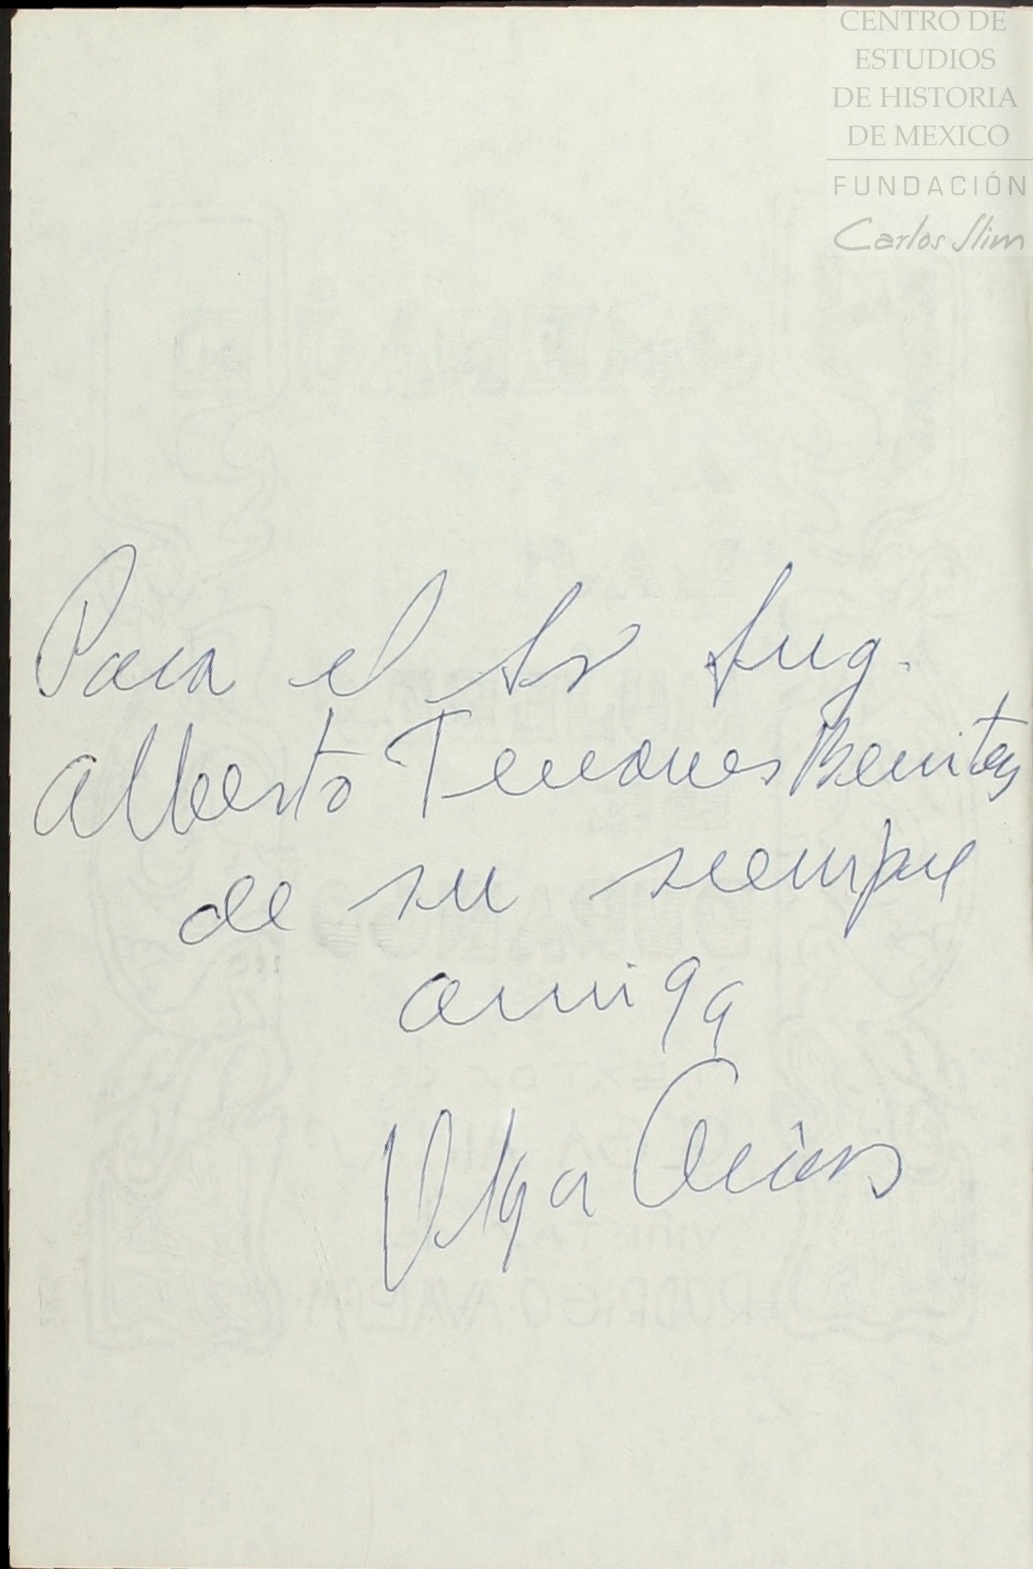 CENTRO DE
ESTUDIOS
DE HISTORIA
DE MEXICO
FUNDACIÓN
Carlos Slim
Para el Sr Ing.
Alberto Terrones Benitez
de su siempre
amiga
Olga Arias